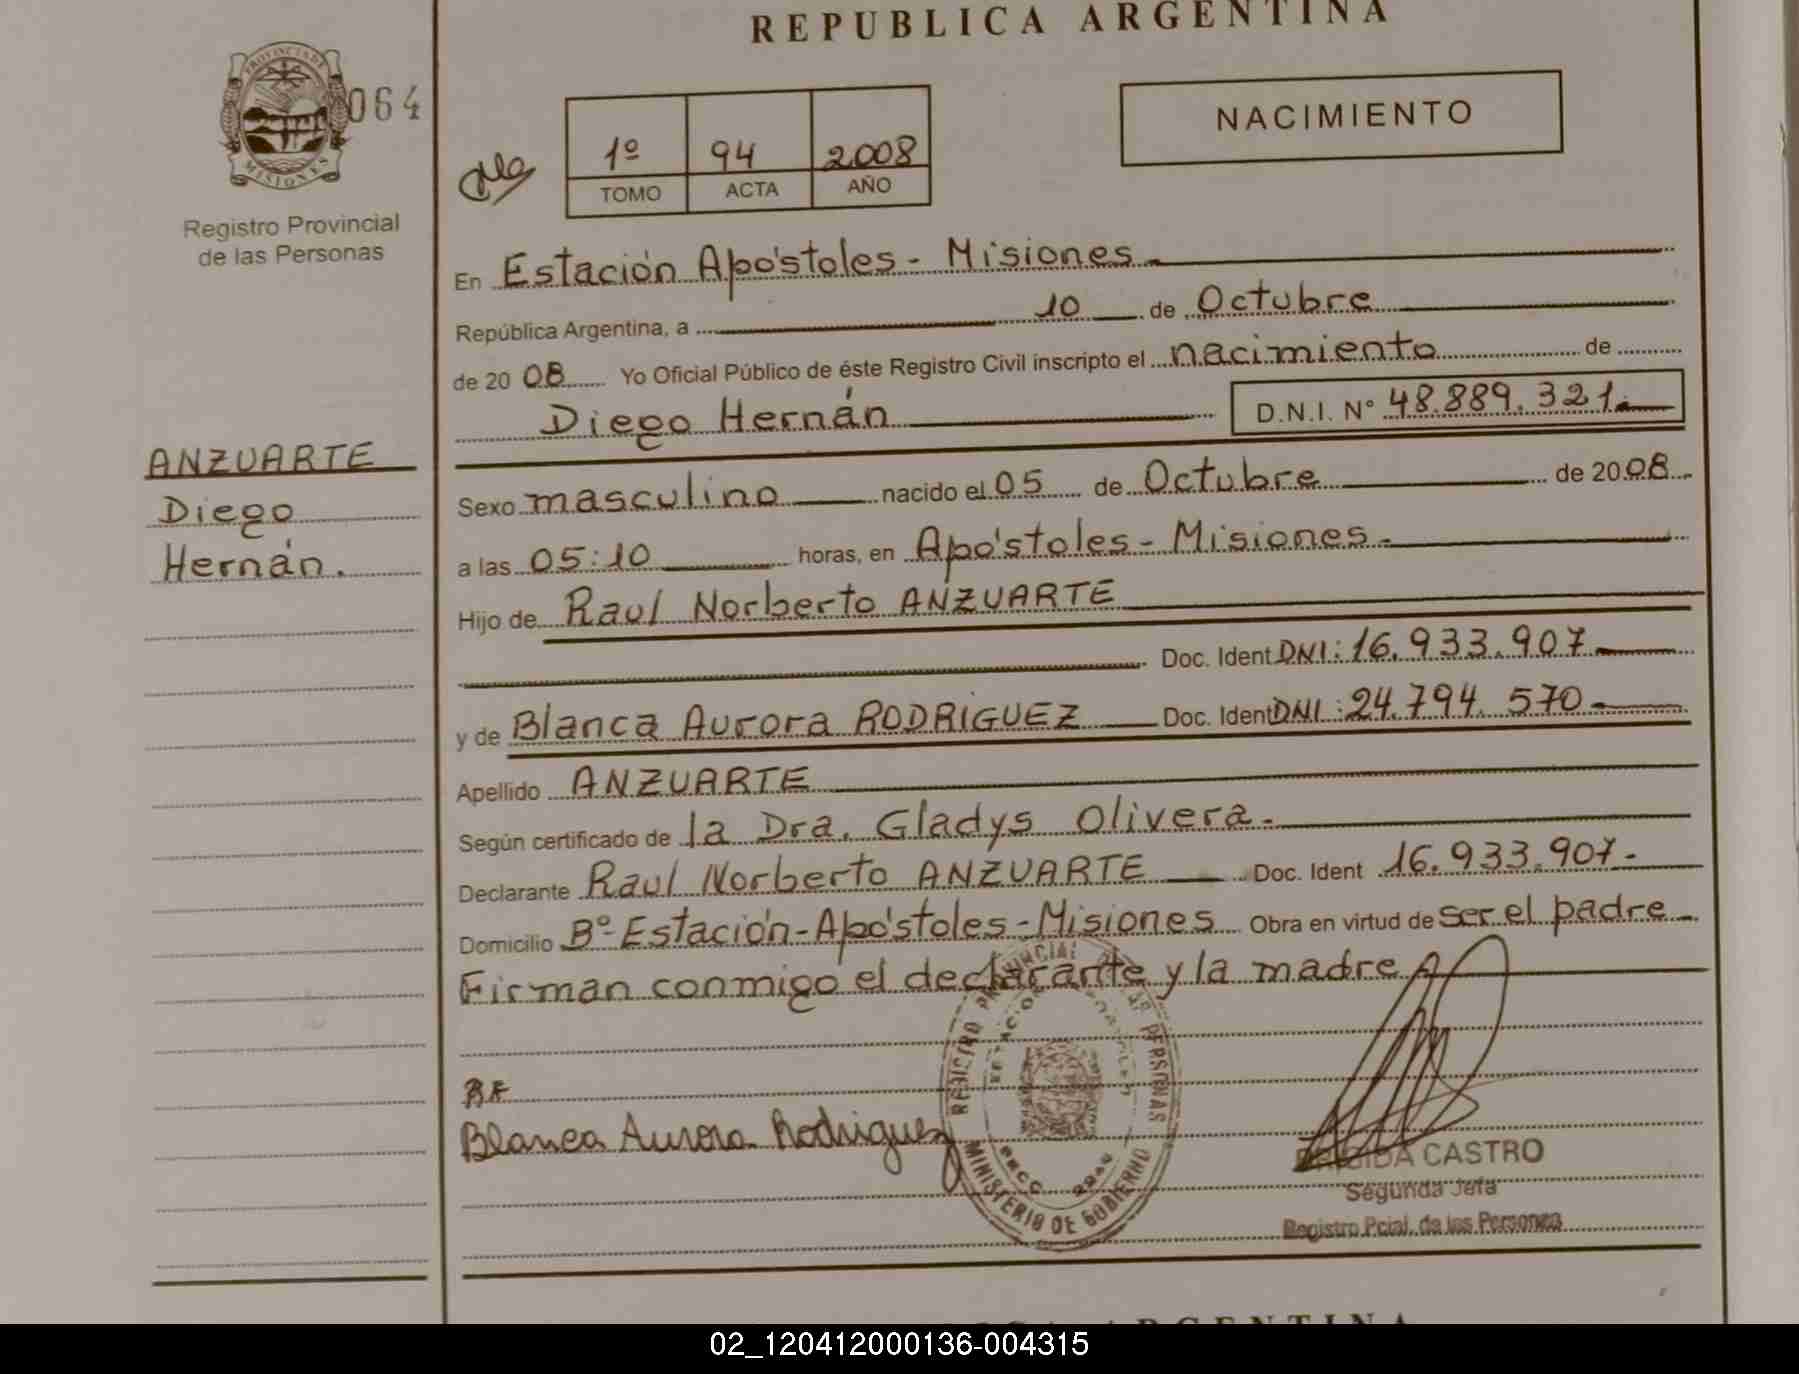 REPUBLICA ARGENTINA
PROVINCIA DE
MISIONES
064
Registro Provincial
de las Personas
1º 94 2008
TOMO ACTA AÑO
NACIMIENTO
En Estación Apóstoles - Misiones
República Argentina, a 10 de Octubre
de 2008 Yo Oficial Público de éste Registro Civil inscripto el nacimiento de
Diego Hernán D.N.I. Nº 48.889.321
ANZUARTE
Diego
Hernán.
Sexo masculino nacido el 05 de Octubre de 2008
a las 05:10 horas, en Apóstoles - Misiones
Hijo de Raul Norberto ANZUARTE
Doc. Ident DNI: 16.933.907
y de Blanca Aurora RODRIGUEZ Doc. Ident DNI: 24.794.570
Apellido ANZUARTE
Según certificado de la Dra. Gladys Olivera
Declarante Raul Norberto ANZUARTE Doc. Ident 16.933.907
Domicilio Bº Estación - Apóstoles - Misiones Obra en virtud de ser el padre
Firman conmigo el declarante y la madre
Blanca Aurora Rodriguez
REGISTRO PROVINCIAL PERSONAS
MINISTERIO DE GOBIERNO
BRIGIDA CASTRO
Segunda Jefa
Registro Pcial. de las Personas
ARGENTINA
02_120412000136-004315